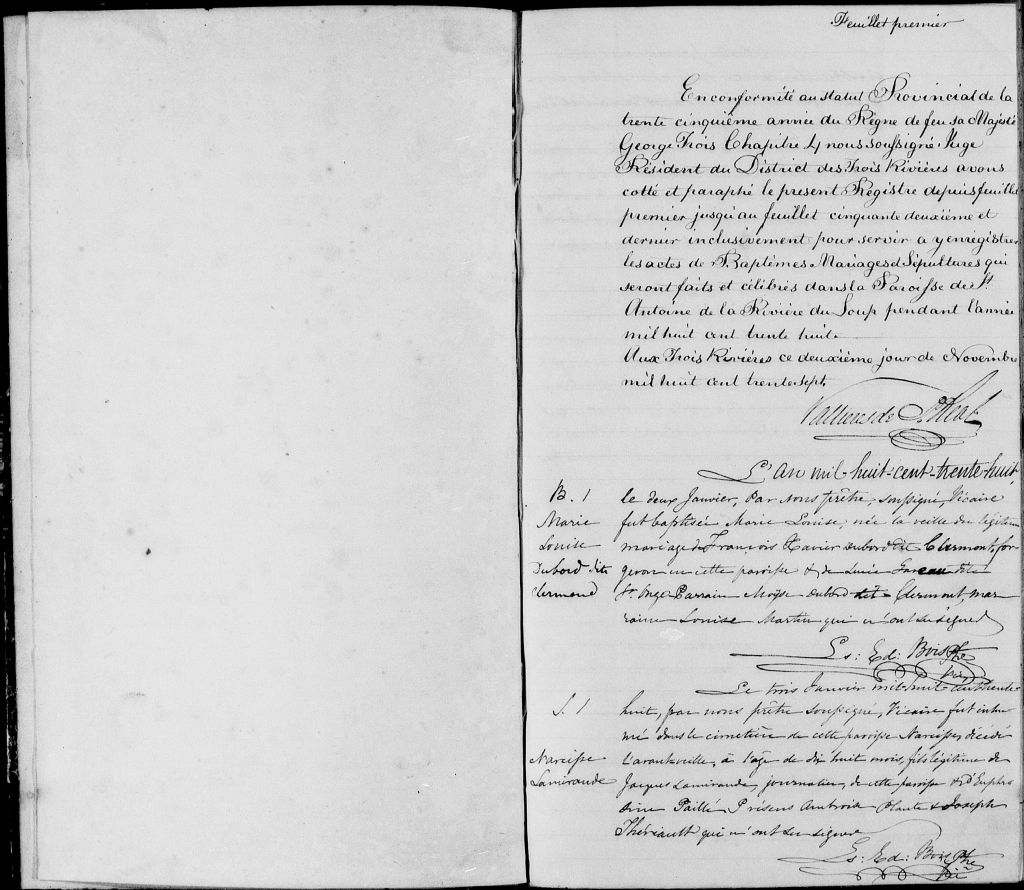 Feuillet premier
En conformité au statut Provincial de la
trente cinquième année du Règne de feu sa Majesté
George Trois Chapitre 4 nous soussigné Juge
Résident du District des Trois Rivières avons
cotté et paraphé le present Régistre depuis feuillet
premier jusqu'au feuillet cinquante deuxième et
dernier inclusivement pour servir a y enregistrer
les actes de Baptêmes Mariages et Sépultures qui
seront faits et célébrés dans la Paroisse de St
Antoine de la Rivière du Loup pendant l'année
mil huit cent trente huit.
Aux Trois Rivières ce deuxième jour de Novembre
mil huit cent trente sept.
Vallieres de St Real
L'an mil-huit-cent-trente-huit,
B. 1
Marie
Louise
Dubord dite
Clermond
le deux Janvier, Par Nous prêtre, soussigné, Vicaire
fut baptisée Marie Louise, née la veille du légitime
mariage de François Xavier Dubord dit Clermont, for-
geron en cette paroisse & de Lucie Gareau dite
St. Onge Parrain Moÿse Dubord dit Clermont, mar-
raine Louise Martin qui n'ont su signer
Ls: Ed: Bois Ptre
Vic
Le trois Janvier mil-huit cent trente
S. 1
Narcisse
Lamirande
huit, par nous prêtre soussigné, Vicaire fut inhu-
mé dans le cimetière de cette paroisse Narcisse, décédé
l'avant veille, à l'age de dix huit mois, fils légitime de
Jacques Lamirande, journalier, de cette paroisse & d'Euphro
sine Paillé Présens Ambroise Plante & Joseph
Thériault qui n'ont su signer
Ls: Ed: Bois Ptre
Vic